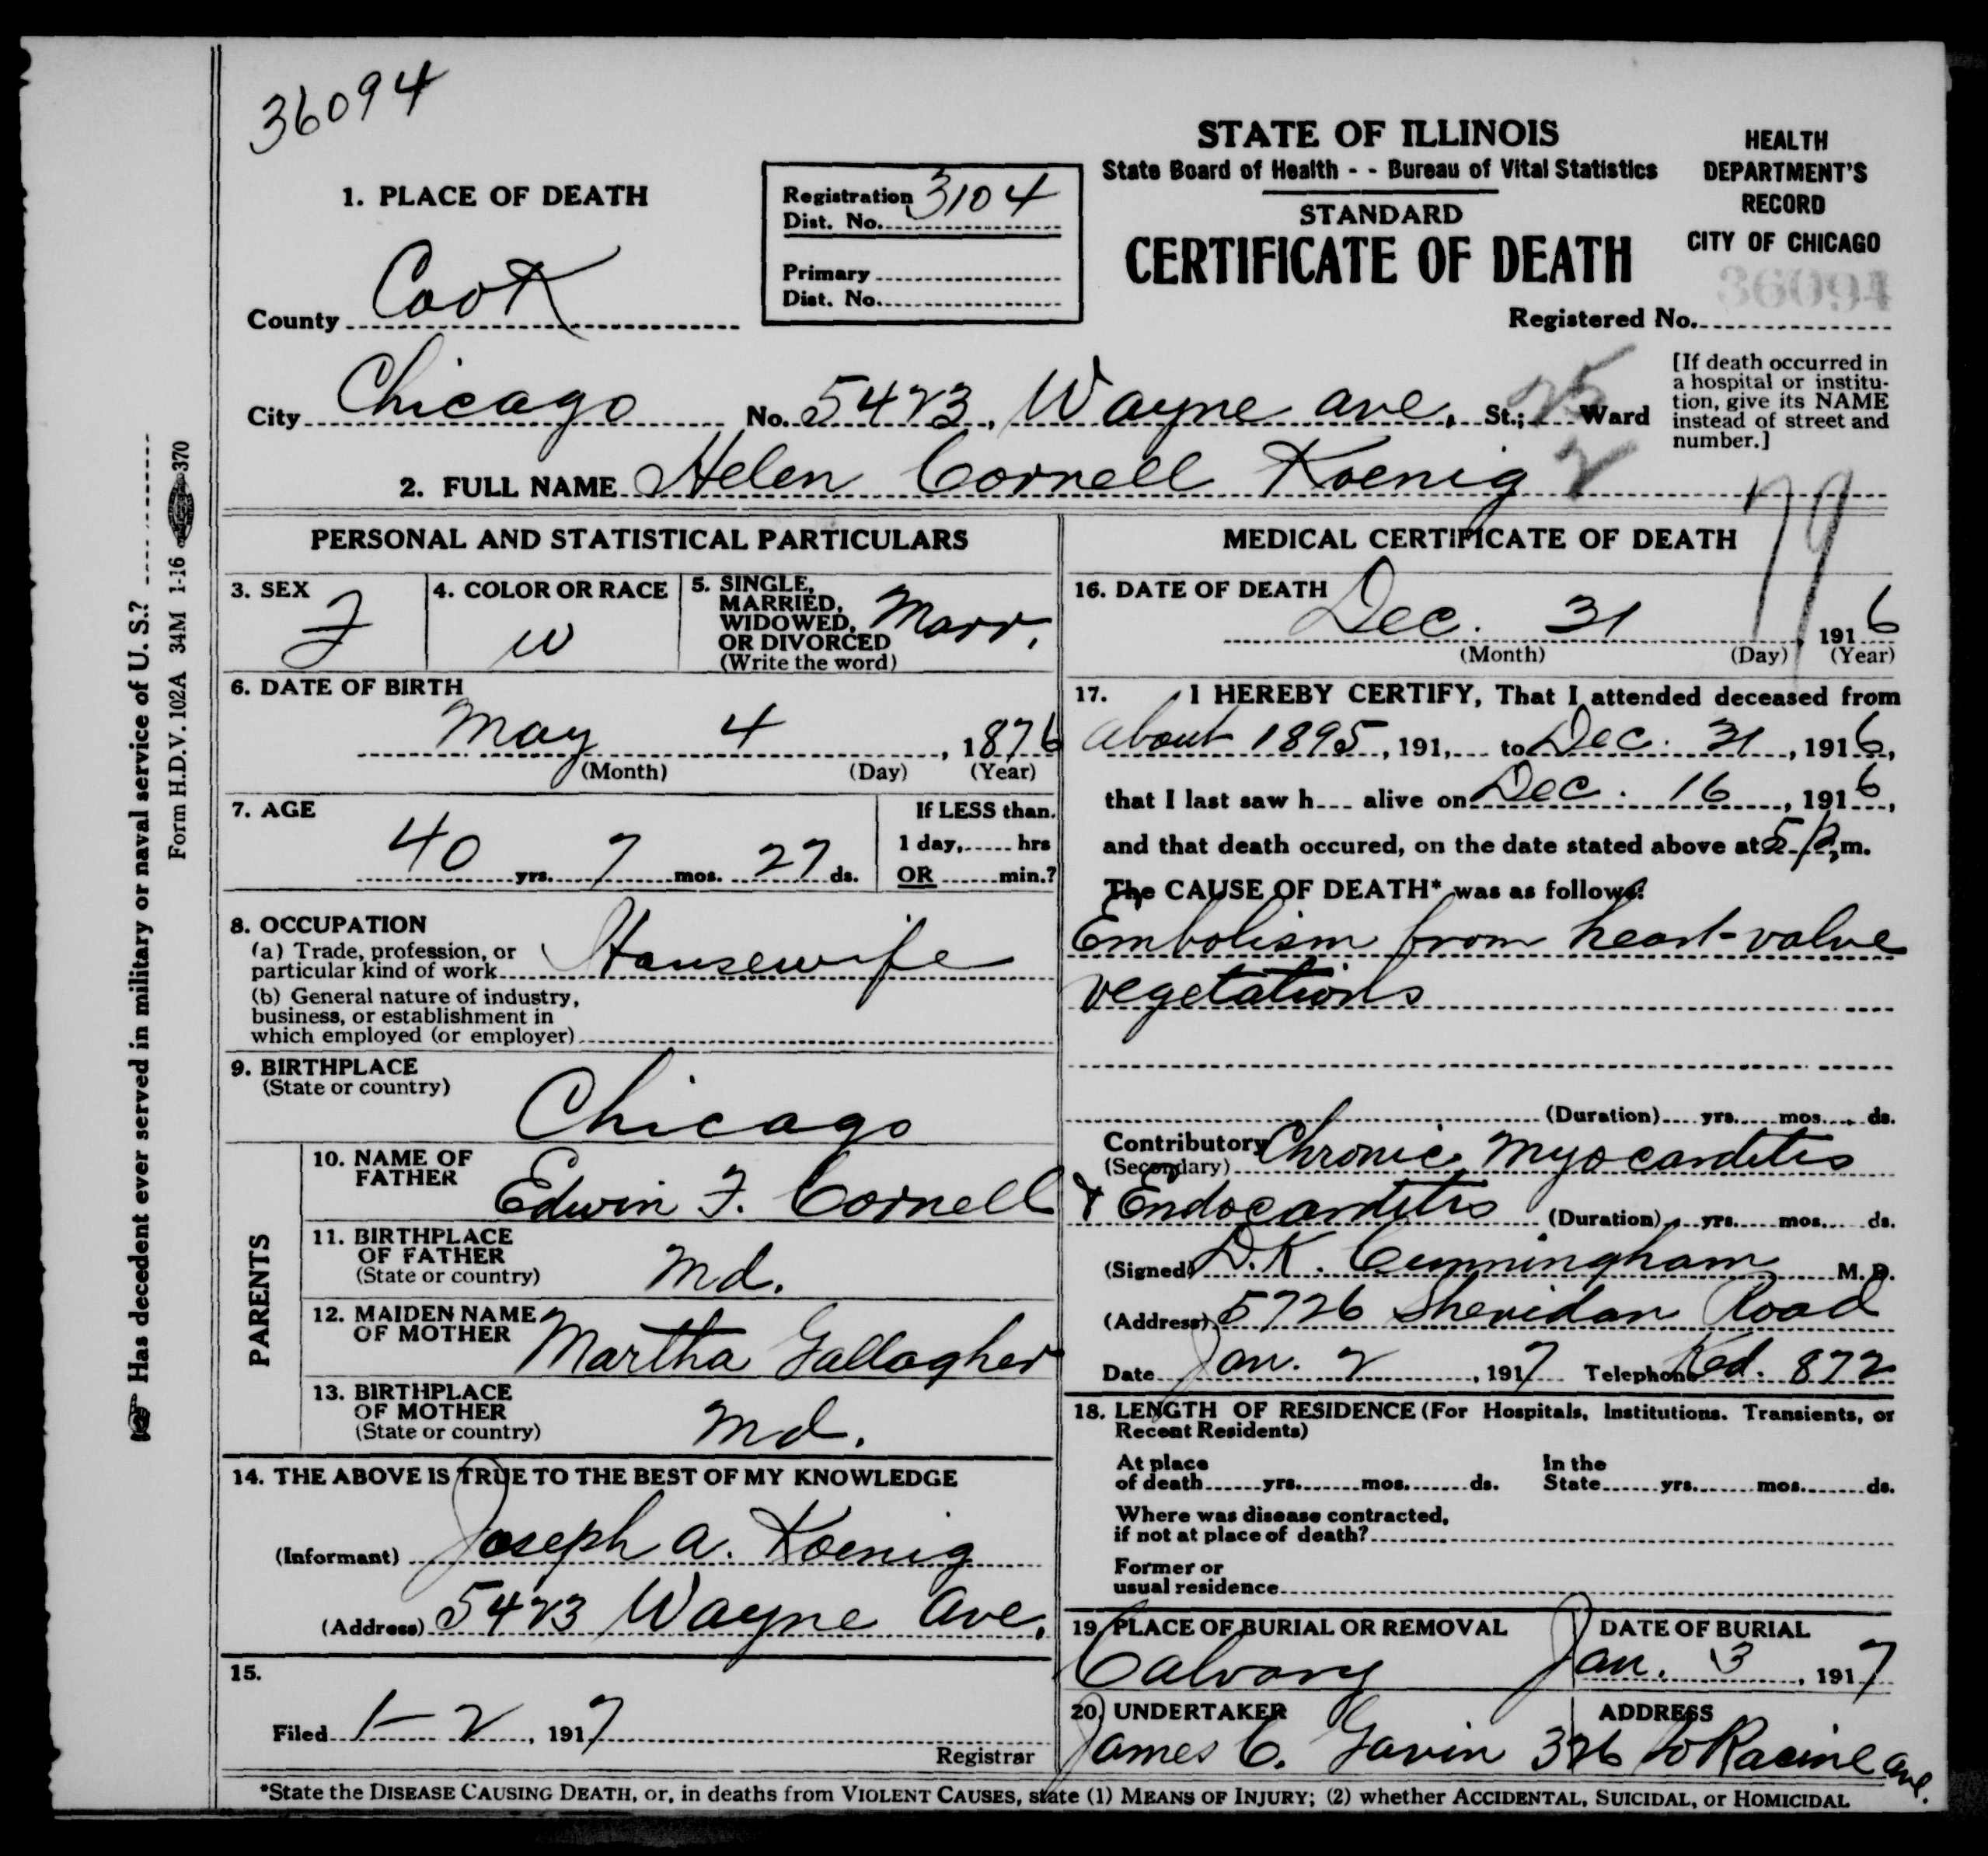 36094
STATE OF ILLINOIS
State Board of Health - - Bureau of Vital Statistics
STANDARD
CERTIFICATE OF DEATH
HEALTH
DEPARTMENT'S
RECORD
CITY OF CHICAGO
36094
Registered No.
1. PLACE OF DEATH
Registration
Dist. No. 3104
Primary
Dist. No.
County Cook
City Chicago No. 5423, Wayne ave, St.; 25 Ward
2
[If death occurred in
a hospital or institu-
tion, give its NAME
instead of street and
number.]
2. FULL NAME Helen Cornell Koenig
79
PERSONAL AND STATISTICAL PARTICULARS
3. SEX F
4. COLOR OR RACE W
5. SINGLE,
MARRIED,
WIDOWED,
OR DIVORCED
(Write the word) Marr.
6. DATE OF BIRTH
May 4, 1876
(Month) (Day) (Year)
7. AGE
40 yrs. 7 mos. 27 ds.
If LESS than
1 day, hrs
OR min.?
8. OCCUPATION
(a) Trade, profession, or
particular kind of work Housewife
(b) General nature of industry,
business, or establishment in
which employed (or employer)
9. BIRTHPLACE
(State or country)
Chicago
PARENTS
10. NAME OF
FATHER Edwin F. Cornell
11. BIRTHPLACE
OF FATHER
(State or country) Md.
12. MAIDEN NAME
OF MOTHER Martha Gallagher
13. BIRTHPLACE
OF MOTHER
(State or country) Md.
14. THE ABOVE IS TRUE TO THE BEST OF MY KNOWLEDGE
(Informant) Joseph A. Koenig
(Address) 5423 Wayne Ave.
15.
Filed 1-2, 1917
Registrar
MEDICAL CERTIFICATE OF DEATH
16. DATE OF DEATH
Dec. 31 1916
(Month) (Day) (Year)
17. I HEREBY CERTIFY, That I attended deceased from
about 1895, 191, to Dec. 31, 1916,
that I last saw h alive on Dec. 16, 1916,
and that death occured, on the date stated above at 5 P, m.
The CAUSE OF DEATH* was as follows:
Embolism from heart-valve
vegetations
(Duration) yrs. mos. ds.
Contributory
(Secondary) Chronic Myocarditis
& Endocarditis (Duration) yrs. mos. ds.
(Signed) D.K. Cunningham M. D.
(Address) 5726 Sheridan Road
Date Jan. 2, 1917 Telephone Ked. 872
18. LENGTH OF RESIDENCE (For Hospitals, Institutions. Transients, or
Recent Residents)
At place
of death yrs. mos. ds. In the
State yrs. mos. ds.
Where was disease contracted,
if not at place of death?
Former or
usual residence
19. PLACE OF BURIAL OR REMOVAL
Calvary
DATE OF BURIAL
Jan. 3, 1917
20. UNDERTAKER
James C. Gavin
ADDRESS
326 Racine ave.
*State the DISEASE CAUSING DEATH, or, in deaths from VIOLENT CAUSES, state (1) MEANS OF INJURY; (2) whether ACCIDENTAL, SUICIDAL, or HOMICIDAL
Has decedent ever served in military or naval service of U. S.?
Form H.D.V. 102A 34M 1-16 370